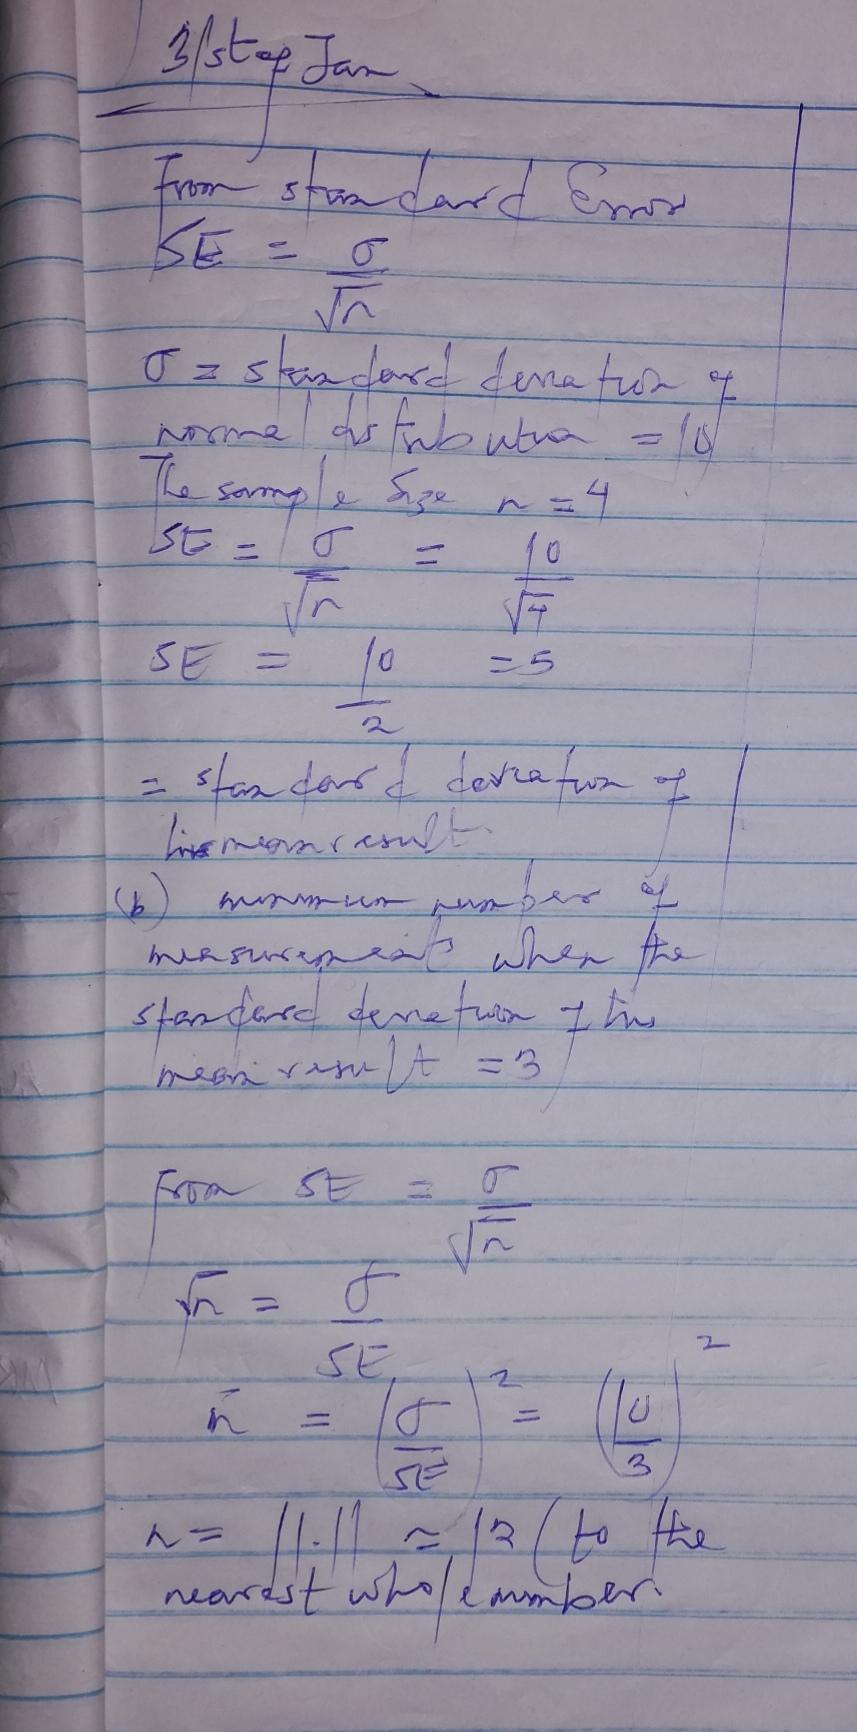 31st of Jan
From standard Error
SE = σ/√n
σ = standard deviation of
normal distribution = 10
The sample Size n = 4
SE = σ/√n = 10/√4
SE = 10/2 = 5
= standard deviation of
his mean result.
(b) minimum number of
measurements when the
standard deviation of his
mean result = 3
From SE = σ/√n
√n = σ/SE
n = (σ/SE)² = (10/3)²
n = 11.11 ≈ 12 (to the
nearest whole number.